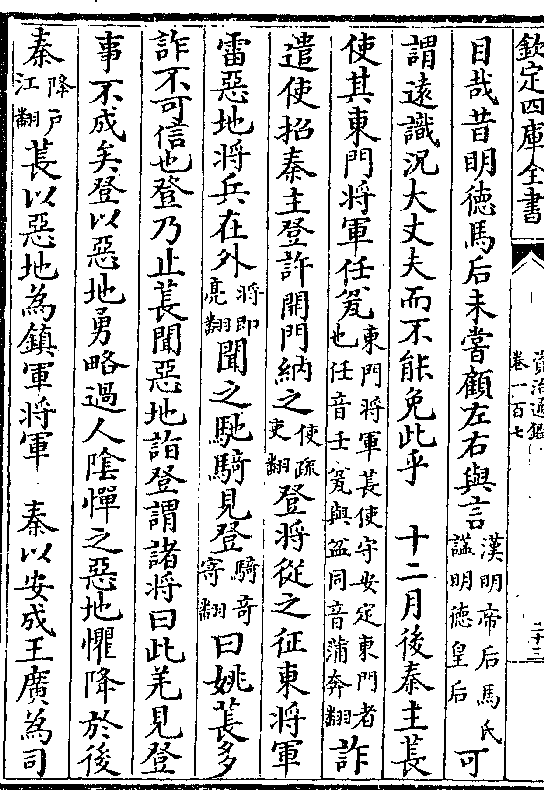 欽定四庫全書
資治通鑑
卷一百七
二十三
目哉昔明德馬后未嘗顧左右與言漢明帝后馬氏諡明德皇后可
謂遠識況大丈夫而不能免此乎　十二月後秦主萇
使其東門將軍任瓫東門將軍萇使守安定東門者也任音壬瓫與盆同音蒲奔翻詐
遣使招秦主登許開門納之使疏吏翻登將從之征東將軍
雷惡地將兵在外將即亮翻聞之馳騎見登騎奇寄翻曰姚萇多
詐不可信也登乃止萇聞惡地詣登謂諸將曰此羌見登
事不成矣登以惡地勇略過人陰憚之惡地懼降於後
秦降戶江翻萇以惡地為鎮軍將軍　秦以安成王廣為司